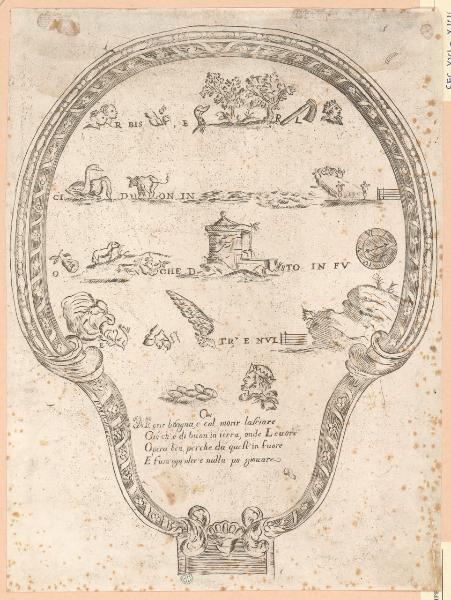 R BIS , E R
CI DU ON IN
O CHE D STO IN FV
E TR E NVL
bisogna, e col morir lasciare
Ciò ch'è di buon in terra, onde
Opera ben, perche da quest' in fuore
E fumo ogn' e nulla po giouare
SEC. XVI - XVII